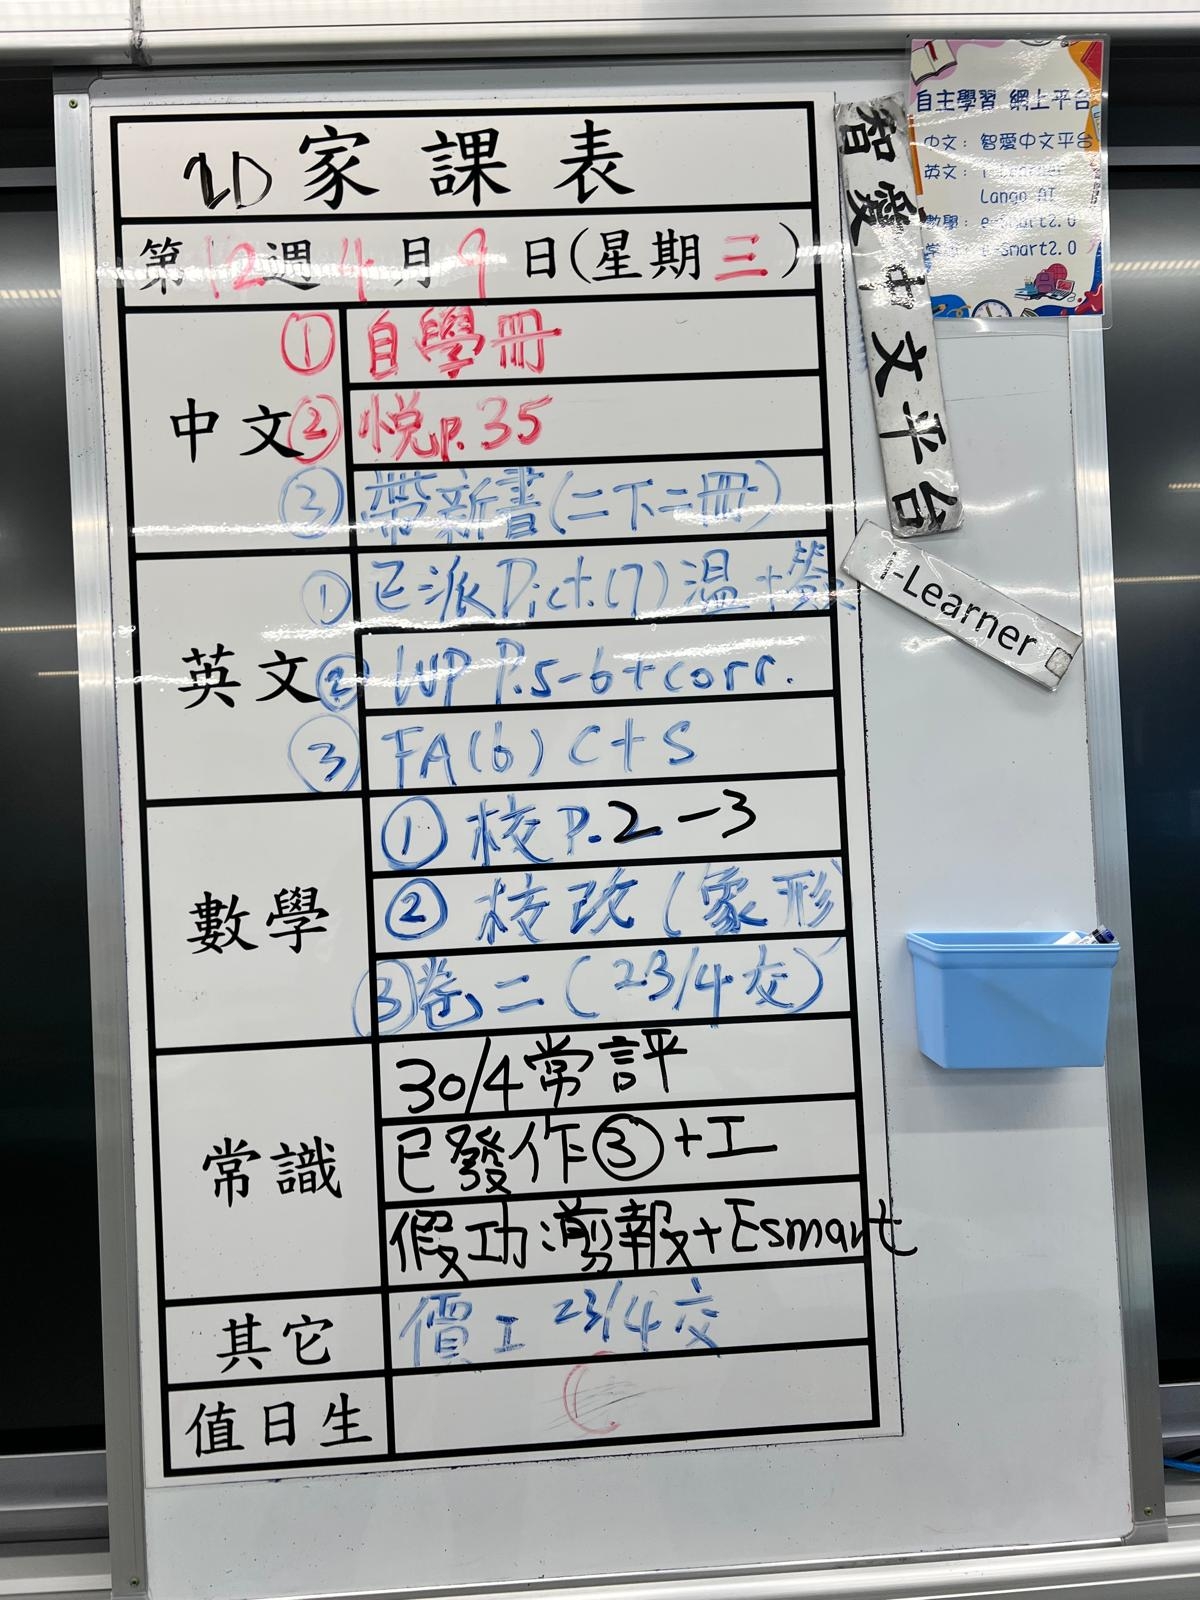 2D 家課表
第12週4月9日(星期三)
中文
① 自學冊
② 悦p.35
③ 帶新書(二下二冊)
英文
① 已派Dict.(7)溫+簽
② WP P.5-6+corr.
③ FA(6) C+S
數學
① 校P.2-3
② 校改(象形)
③ 卷二(23/4交)
常識
30/4常評
已發作③+工
假功:剪報+Esmart
其它
價工 23/4交
值日生
自主學習 網上平台
中文：智愛中文平台
英文：
Lango AI
數學：e-smart2.0
smart2.0
智愛中文平台
i-Learner